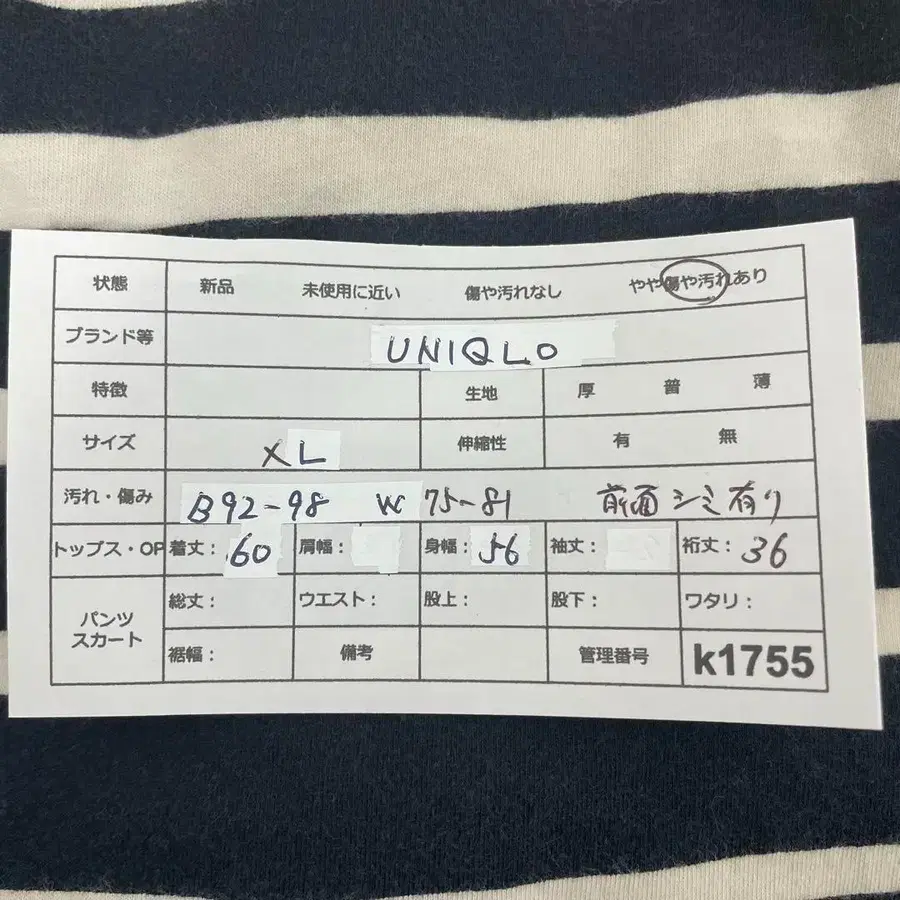 状態 新品 未使用に近い 傷や汚れなし やや傷や汚れあり
ブランド等 UNIQLO
特徴 生地 厚 普 薄
サイズ XL 伸縮性 有 無
汚れ・傷み B92-98 W 75-81 前面シミ有り
トップス・OP 着丈：60 肩幅： 身幅：56 袖丈： 裄丈：36
パンツ スカート 総丈： ウエスト： 股上： 股下： ワタリ：
裾幅： 備考 管理番号 k1755